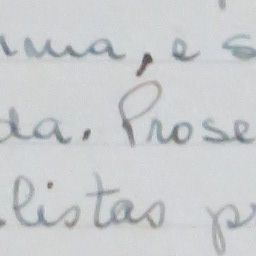 uma, e s
da. Prose
listas p